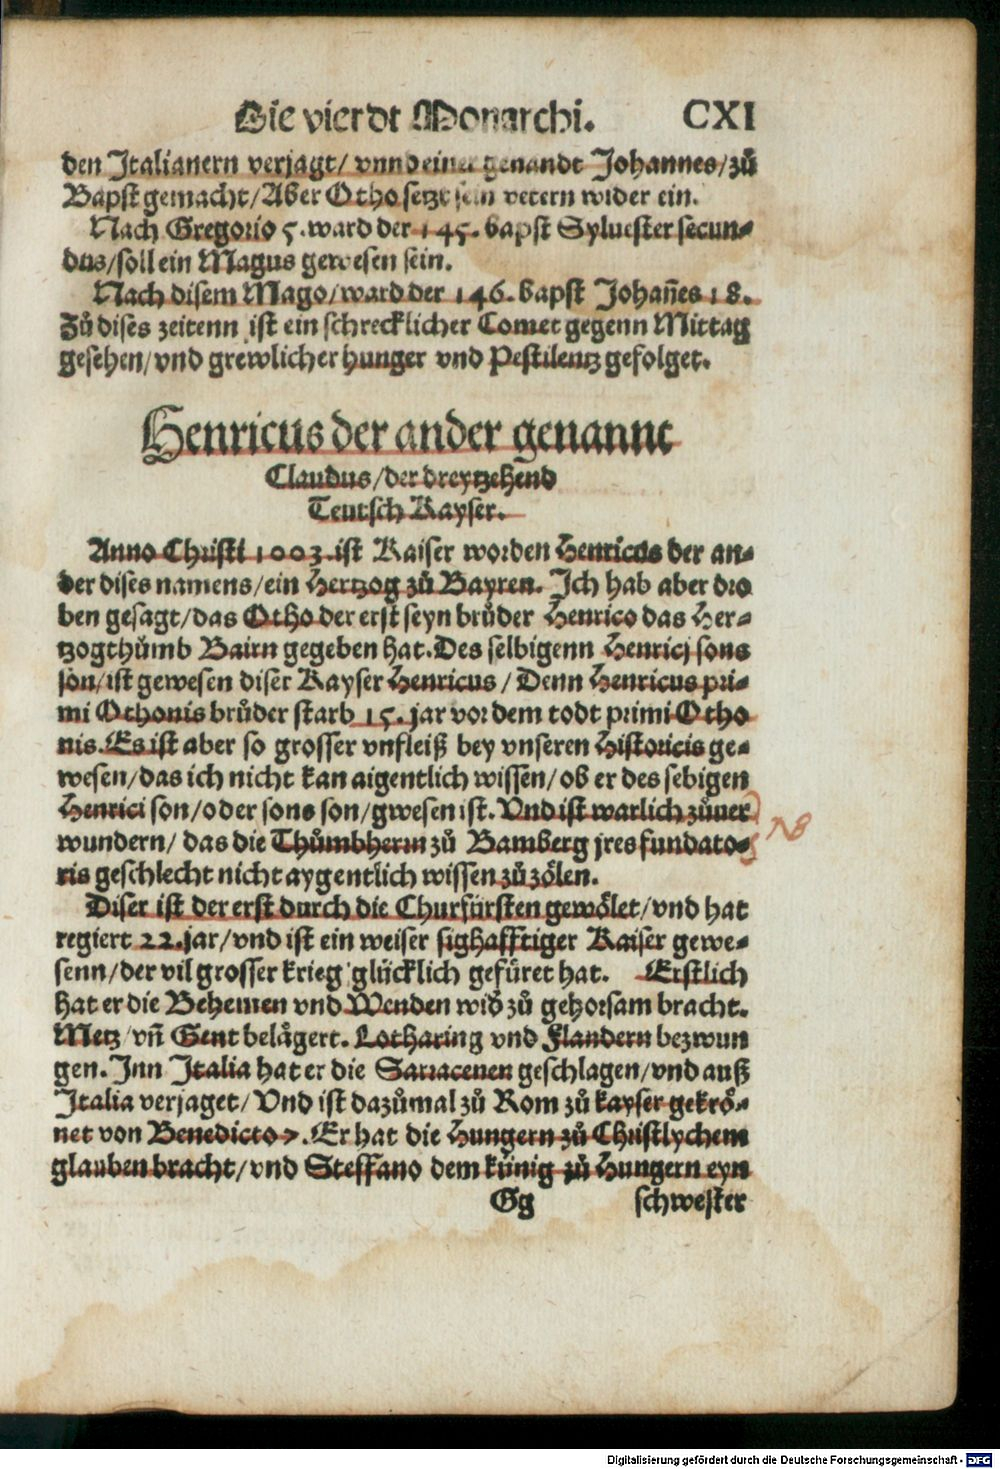 Die vierdt Monarchi. CXI
den Italianern verjagt/ vnnd einer genandt Johannes/zů
Bapst gemacht/Aber Otho setzt sein vetern wider ein.
Nach Gregorio 5. ward der 145. bapst Syluester secun-
dus/soll ein Magus gewesen sein.
Nach disem Mago/ward der 146. bapst Johañes 18.
Zů dises zeitenn ist ein schrecklicher Comet gegenn Mittag
gesehen/vnd grewlicher hunger vnd Pestilentz gefolget.
Henricus der ander genannt
Claudus/der dreytzehend
Teutsch Kayser.
Anno Christi 1003. ist Kaiser worden Henricus der an-
der dises namens/ein Hertzog zů Bayren. Ich hab aber dro
ben gesagt/das Otho der erst seyn brůder Henrico das Her-
tzogthůmb Bairn gegeben hat. Des selbigenn Henrici sons
son/ist gewesen diser Kayser Henricus/ Denn Henricus pri-
mi Othonis brůder starb 15. jar vor dem todt primi Otho
nis. Es ist aber so grosser vnfleiß bey vnseren Historicis ge-
wesen/das ich nicht kan aigentlich wissen/ob er des sebigen
Henrici son/oder sons son/gwesen ist. Vnd ist warlich zůuer
wundern/ das die Thůmbherrn zů Bamberg jres fundato-
NB
ris geschlecht nicht aygentlich wissen zů zölen.
Diser ist der erst durch die Churfürsten gewölet/vnd hat
regiert 22. jar/vnd ist ein weiser sighafftiger Kaiser gewe-
senn/der vil grosser krieg glücklich gefüret hat. Erstlich
hat er die Behemen vnd Wenden wid̄ zů gehorsam bracht.
Metz/vñ Gent belägert. Lotharing vnd Flandern bezwun
gen. Inn Italia hat er die Sarracenen geschlagen/vnd auß
Italia verjaget/ Vnd ist dazůmal zů Rom zů kayser gekrö-
net von Benedicto 7. Er hat die Hungern zů Christlychem
glauben bracht/vnd Steffano dem künig zů Hungern eyn
Gg schwester
Digitalisierung gefördert durch die Deutsche Forschungsgemeinschaft - DFG